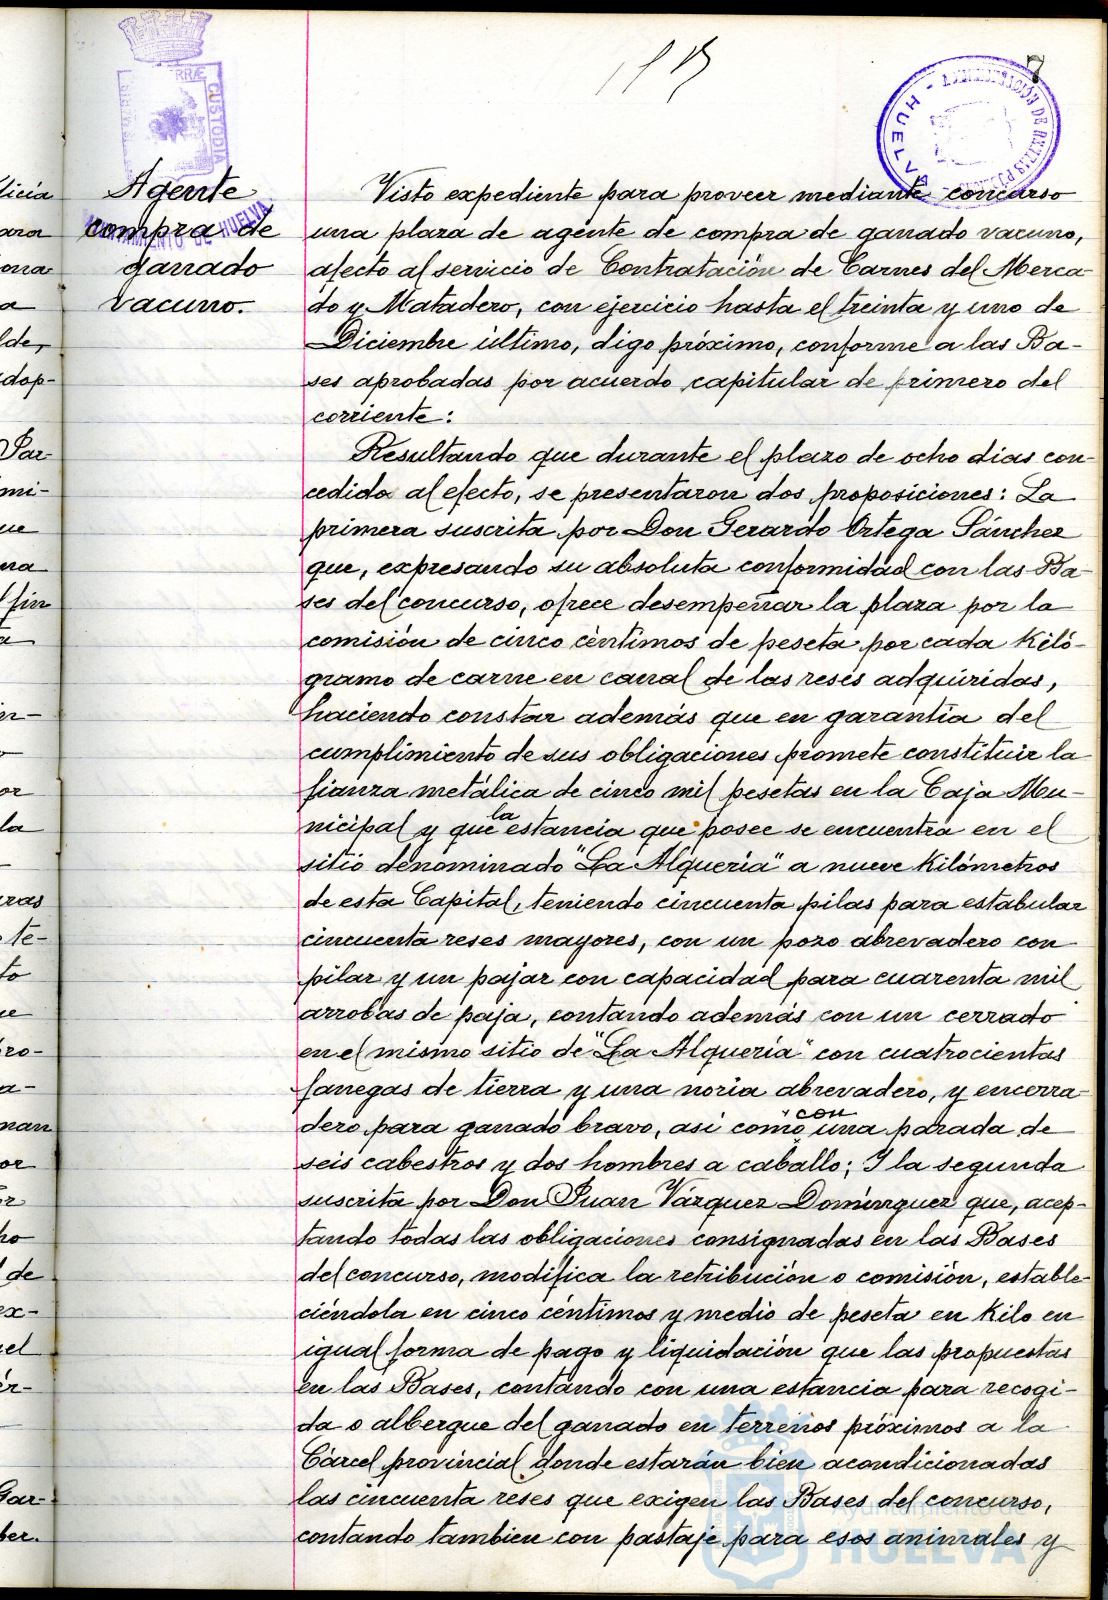 7
ADMINISTRACIÓN DE RENTAS
HUELVA
CUSTODIA
AYUNTAMIENTO DE HUELVA
Agente
compra de
ganado
vacuno.
Visto expediente para proveer mediante concurso
una plaza de agente de compra de ganado vacuno,
afecto al servicio de Contratación de Carnes del Merca-
do y Matadero, con ejercicio hasta el treinta y uno de
Diciembre último, digo próximo, conforme a las Ba-
ses aprobadas por acuerdo capitular de primero del
corriente:
Resultando que durante el plazo de ocho dias con-
cedido al efecto, se presentaron dos proposiciones: La
primera suscrita por Don Gerardo Ortega Sánchez
que, expresando su absoluta conformidad con las Ba-
ses del concurso, ofrece desempeñar la plaza por la
comisión de cinco céntimos de peseta por cada Kiló-
gramo de carne en canal de las reses adquiridas,
haciendo constar además que en garantia del
cumplimiento de sus obligaciones promete constituir la
fianza metálica de cinco mil pesetas en la Caja Mu-
nicipal y que la estancia que posee se encuentra en el
sitio denominado "La Alqueria" a nueve Kilómetros
de esta Capital, teniendo cincuenta pilas para estabular
cincuenta reses mayores, con un pozo abrevadero con
pilar y un pajar con capacidad para cuarenta mil
arrobas de paja, contando además con un cerrado
en el mismo sitio de "La Alqueria" con cuatrocientas
fanegas de tierra y una noria abrevadero, y encerra-
dero para ganado bravo, asi como con una parada de
seis cabestros y dos hombres a caballo; I la segunda
suscrita por Don Juan Vázquez Dominguez que, acep-
tando todas las obligaciones consignadas en las Bases
del concurso, modifica la retribución o comisión, estable-
ciéndola en cinco céntimos y medio de peseta en Kilo en
igual forma de pago y liquidación que las propuestas
en las Bases, contando con una estancia para recogi-
da o albergue del ganado en terrenos próximos a la
Cárcel provincial donde estarán bien acondicionadas
las cincuenta reses que exigen las Bases del concurso,
contando tambien con pastaje para esos animales y
Ayuntamiento de
HUELVA